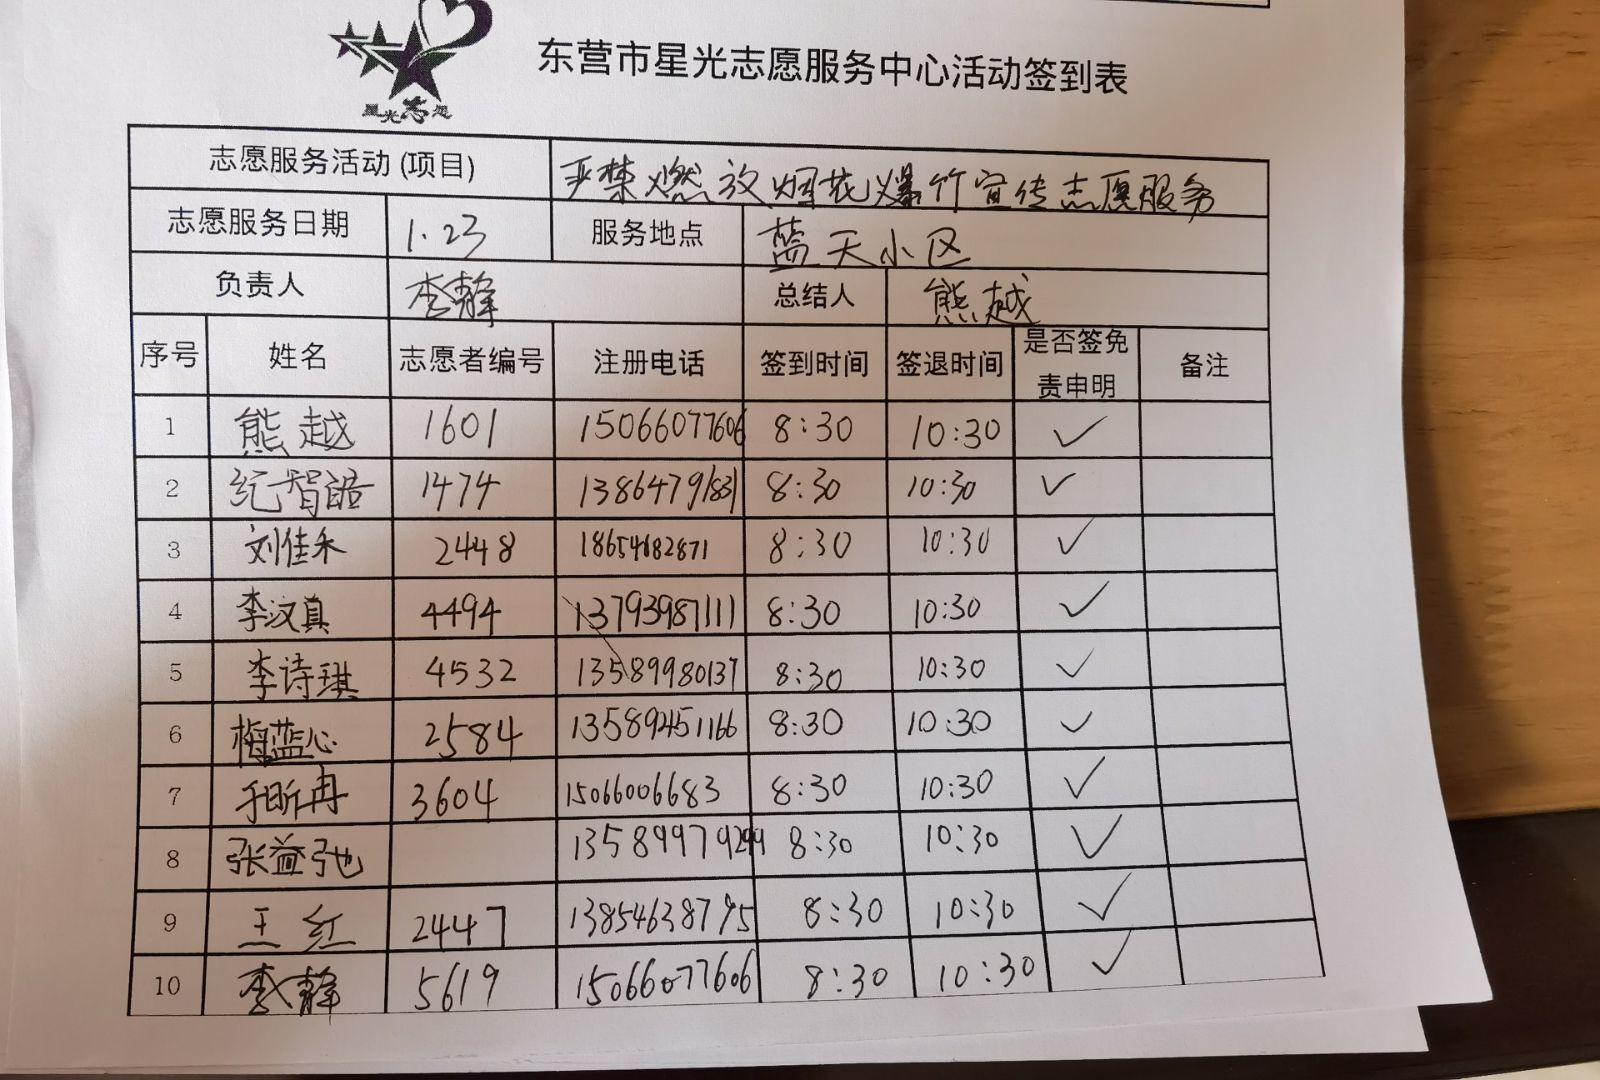 星光志愿
东营市星光志愿服务中心活动签到表
志愿服务活动(项目) 严禁燃放烟花爆竹宣传志愿服务
志愿服务日期 1.23 服务地点 蓝天小区
负责人 李静 总结人 熊越
序号 姓名 志愿者编号 注册电话 签到时间 签退时间 是否签免责申明 备注
1 熊越 1601 15066077606 8:30 10:30 ✓
2 纪智语 1474 13864791831 8:30 10:30 ✓
3 刘佳禾 2448 18654682871 8:30 10:30 ✓
4 李汶真 4494 13793987111 8:30 10:30 ✓
5 李诗琪 4532 13589980137 8:30 10:30 ✓
6 梅蓝心 2584 13589451166 8:30 10:30 ✓
7 于昕冉 3604 15066006683 8:30 10:30 ✓
8 张益弛 13589979299 8:30 10:30 ✓
9 王红 2447 13854638795 8:30 10:30 ✓
10 李静 5619 15066077606 8:30 10:30 ✓